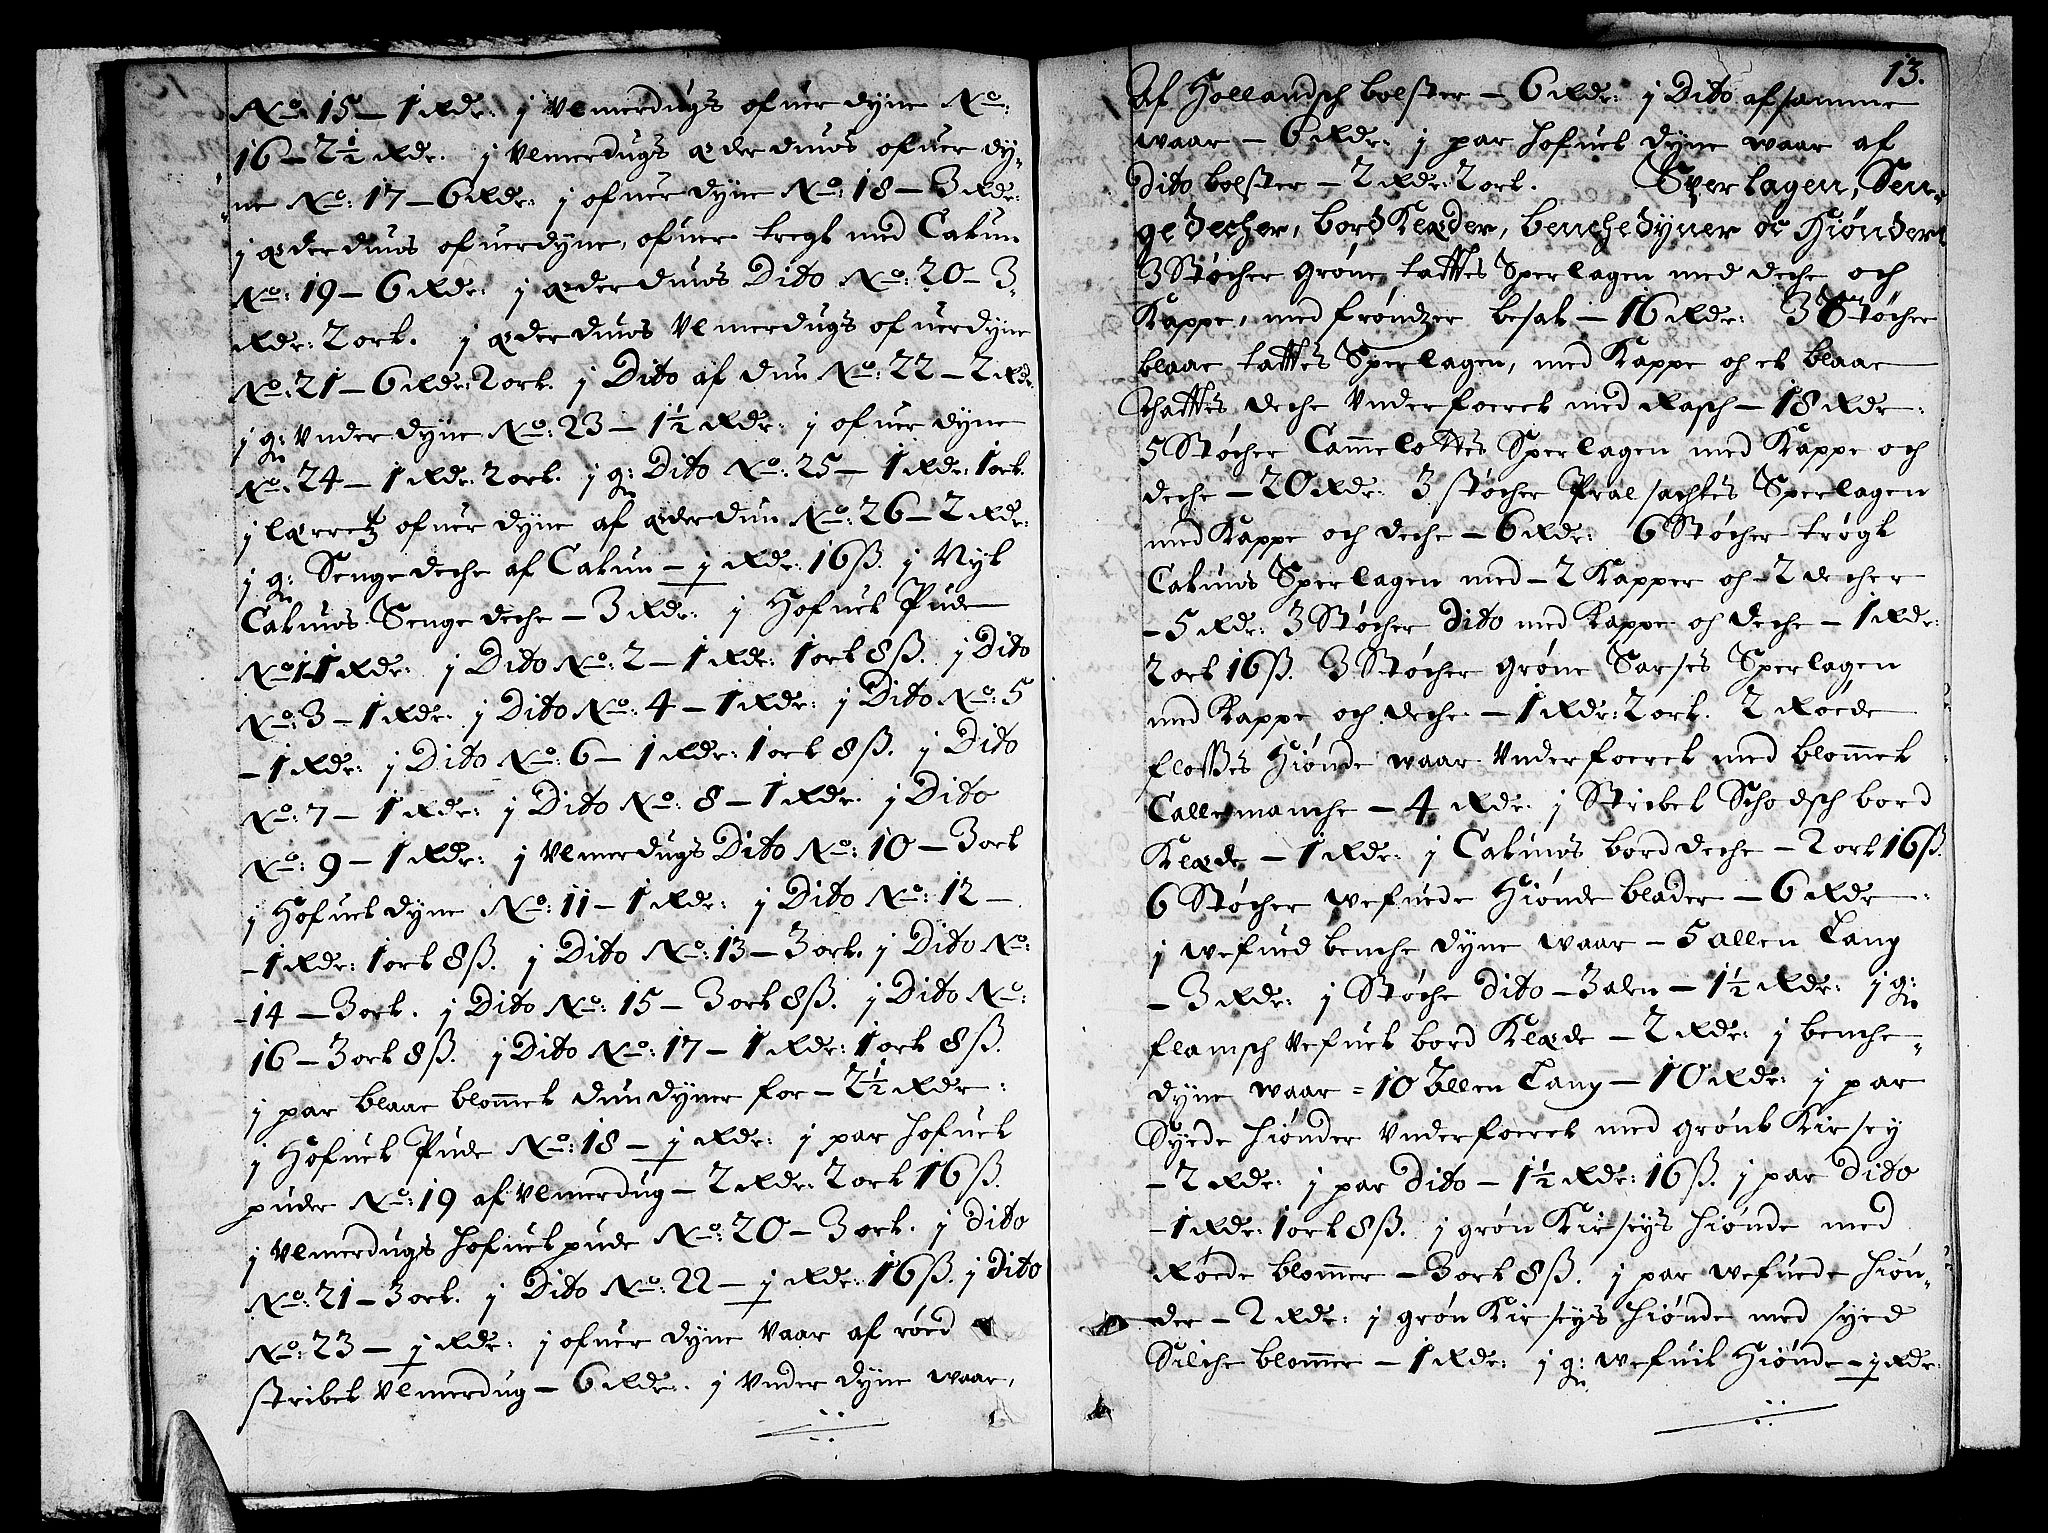 No: 15 – 1 Rdr: j Vlmerdugs ofuer dyne No:
16 – 2½ Rdr. j Vlmerdugs æderduns ofuer dy-
ne No: 17 – 6 Rdr: j ofuer dyne No: 18 – 3 Rdr:
j æderduns ofuerdyne, ofuer tregt med Catun
No: 19 – 6 Rdr: j æderduns Dito No: 20 – 3
Rdr: 2 ort. j æderduns Vlmerdugs ofuerdyne
No: 21 – 6 Rdr: 2 ort. j Dito af dun No: 22 – 2 Rdr.
j g: Vnder dyne No: 23 – 1½ Rdr: j ofuer dyne
No: 24 – 1 Rdr: 2 ort. j g: Dito No: 25 – 1 Rdr: 1 ort.
j lærretz ofuer dyne af æderdun No: 26 – 2 Rdr:
j g: Senge deche af Catun – j Rdr: 16 ß. j Nyt
Catuns Senge deche – 3 Rdr: j Hofuet Pude
No 1 1 Rdr: j Dito No: 2 – 1 Rdr: 1 ort 8 ß. j Dito
No: 3 – 1 Rdr: j Dito No: 4 – 1 Rdr: j Dito No: 5
– 1 Rdr: j Dito No: 6 – 1 Rdr: 1 ort 8 ß. j Dito
No: 7 – 1 Rdr: j Dito No: 8 – 1 Rdr: j Dito
No: 9 – 1 Rdr: j Vlmerdugs Dito No: 10 – 3 ort
j Hofuet dyne No: 11 – 1 Rdr: j Dito No: 12 –
– 1 Rdr: 1 ort 8 ß. j Dito No: 13 – 3 ort. j Dito No:
14 – 3 ort. j Dito No: 15 – 3 ort 8 ß. j Dito No:
16 – 3 ort 8 ß. j Dito No: 17 – 1 Rdr: 1 ort 8 ß.
j par blaae blommet dun dyner for – 2½ Rdr:
j Hofuet Pude No: 18 – j Rdr: j par hofuet
puder No: 19 af Vlmerdug – 2 Rdr: 2 ort 16 ß.
j Vlmerdugs hofuet pude No: 20 – 3 ort. j dito
No: 21 – 3 ort. j Dito No: 22 – j Rdr: 16 ß. j dito
No: 23 – j Rdr: j ofuer dyne Vaar af røed
stribet Vlmerdug – 6 Rdr: j Vnder dyne waar,
13.
Af Hollandsch bolster – 6 Rdr: j Dito af samme
waar – 6 Rdr: j par hofuet dyne waar af
dito bolster – 2 Rdr: 2 ort. Sperlagen, Sen-
ge decher, bord Kleder, benche dyner oc Hiønder
3 Støcher grøne taftes Sperlagen med deche och
Kappe, med frøndzer besat – 16 Rdr: 3 Støcher
blaae taftes Sperlagen, med Kappe oh et blaae
thaftes deche Vnderfoeret med Rasch – 18 Rdr:
5 Støcher Cammelottes Sperlagen med Kappe och
deche – 20 Rdr: 3 støcher Pralsachtes Sperlagen
med Kappe och deche – 6 Rdr: 6 Støcher trøgt
Catuns Sperlagen med – 2 Kapper oh – 2 decher
– 5 Rdr: 3 Støcher dito med Kappe oh deche – 1 Rdr:
2 ort 16 ß. 3 Støcher grøne Sarses Sperlagen
med Kappe och deche – 1 Rdr: 2 ort. 2 Røede
flosses Hiønde waar Vnderfoeret med blommet
Callemanche – 4 Rdr: j Stribet Schodsch bord
Klæde – 1 Rdr: j Catuns bord deche – 2 ort 16 ß.
6 Støcher wefuede Hiønde blader – 6 Rdr:
j wefued benche dyne waar – 5 allen Lang
– 3 Rdr: j Støche dito – 3 alen – 1½ Rdr: j g:
flamsch Vefuet bord Klæde – 2 Rdr: j benche-
dyne waar = 10 Allen Lang – 10 Rdr: j par
Syede hiønder Vnderfoeret med grønt Kirsey
– 2 Rdr: j par dito – 1½ Rdr: 16 ß. j par dito
– 1 Rdr: 1 ort 8 ß. j grøn Kirseys hiønde med
Røede blommer – 3 ort 8 ß. j par wefuede hiøn-
der – 2 Rdr: j grøn Kirseys hiønde med syed
Silche blommer – 1 Rdr: j g: wefuit Hiønde – j Rdr: